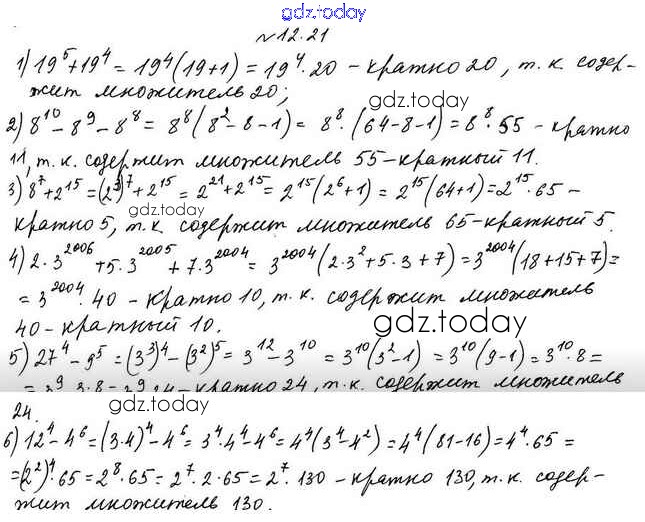 gdz.today
№12.21
1) 19⁵+19⁴ = 19⁴(19+1) = 19⁴·20 - кратно 20, т.к. содер-
жит множитель 20;
gdz.today
2) 8¹⁰-8⁹-8⁸ = 8⁸(8²-8-1) = 8⁸·(64-8-1) = 8⁸·55 - кратно
11, т.к. содержит множитель 55-кратный 11.
3) 8⁷+2¹⁵ = (2³)⁷+2¹⁵ = 2²¹+2¹⁵ = 2¹⁵(2⁶+1) = 2¹⁵(64+1) = 2¹⁵·65 -
gdz.today
кратно 5, т.к. содержит множитель 65-кратный 5.
4) 2·3²⁰⁰⁶+5·3²⁰⁰⁵+7·3²⁰⁰⁴ = 3²⁰⁰⁴(2·3²+5·3+7) = 3²⁰⁰⁴(18+15+7) =
= 3²⁰⁰⁴·40 - кратно 10, т.к. содержит множитель
40-кратный 10.
gdz.today
5) 27⁴-9⁵ = (3³)⁴-(3²)⁵ = 3¹²-3¹⁰ = 3¹⁰(3²-1) = 3¹⁰(9-1) = 3¹⁰·8 =
= 3⁹·3·8 = 3⁹·24 - кратно 24, т.к. содержит множитель
24.
gdz.today
6) 12⁴-4⁶ = (3·4)⁴-4⁶ = 3⁴·4⁴-4⁶ = 4⁴(3⁴-4²) = 4⁴(81-16) = 4⁴·65 =
= (2²)⁴·65 = 2⁸·65 = 2⁷·2·65 = 2⁷·130 - кратно 130, т.к. содер-
жит множитель 130.